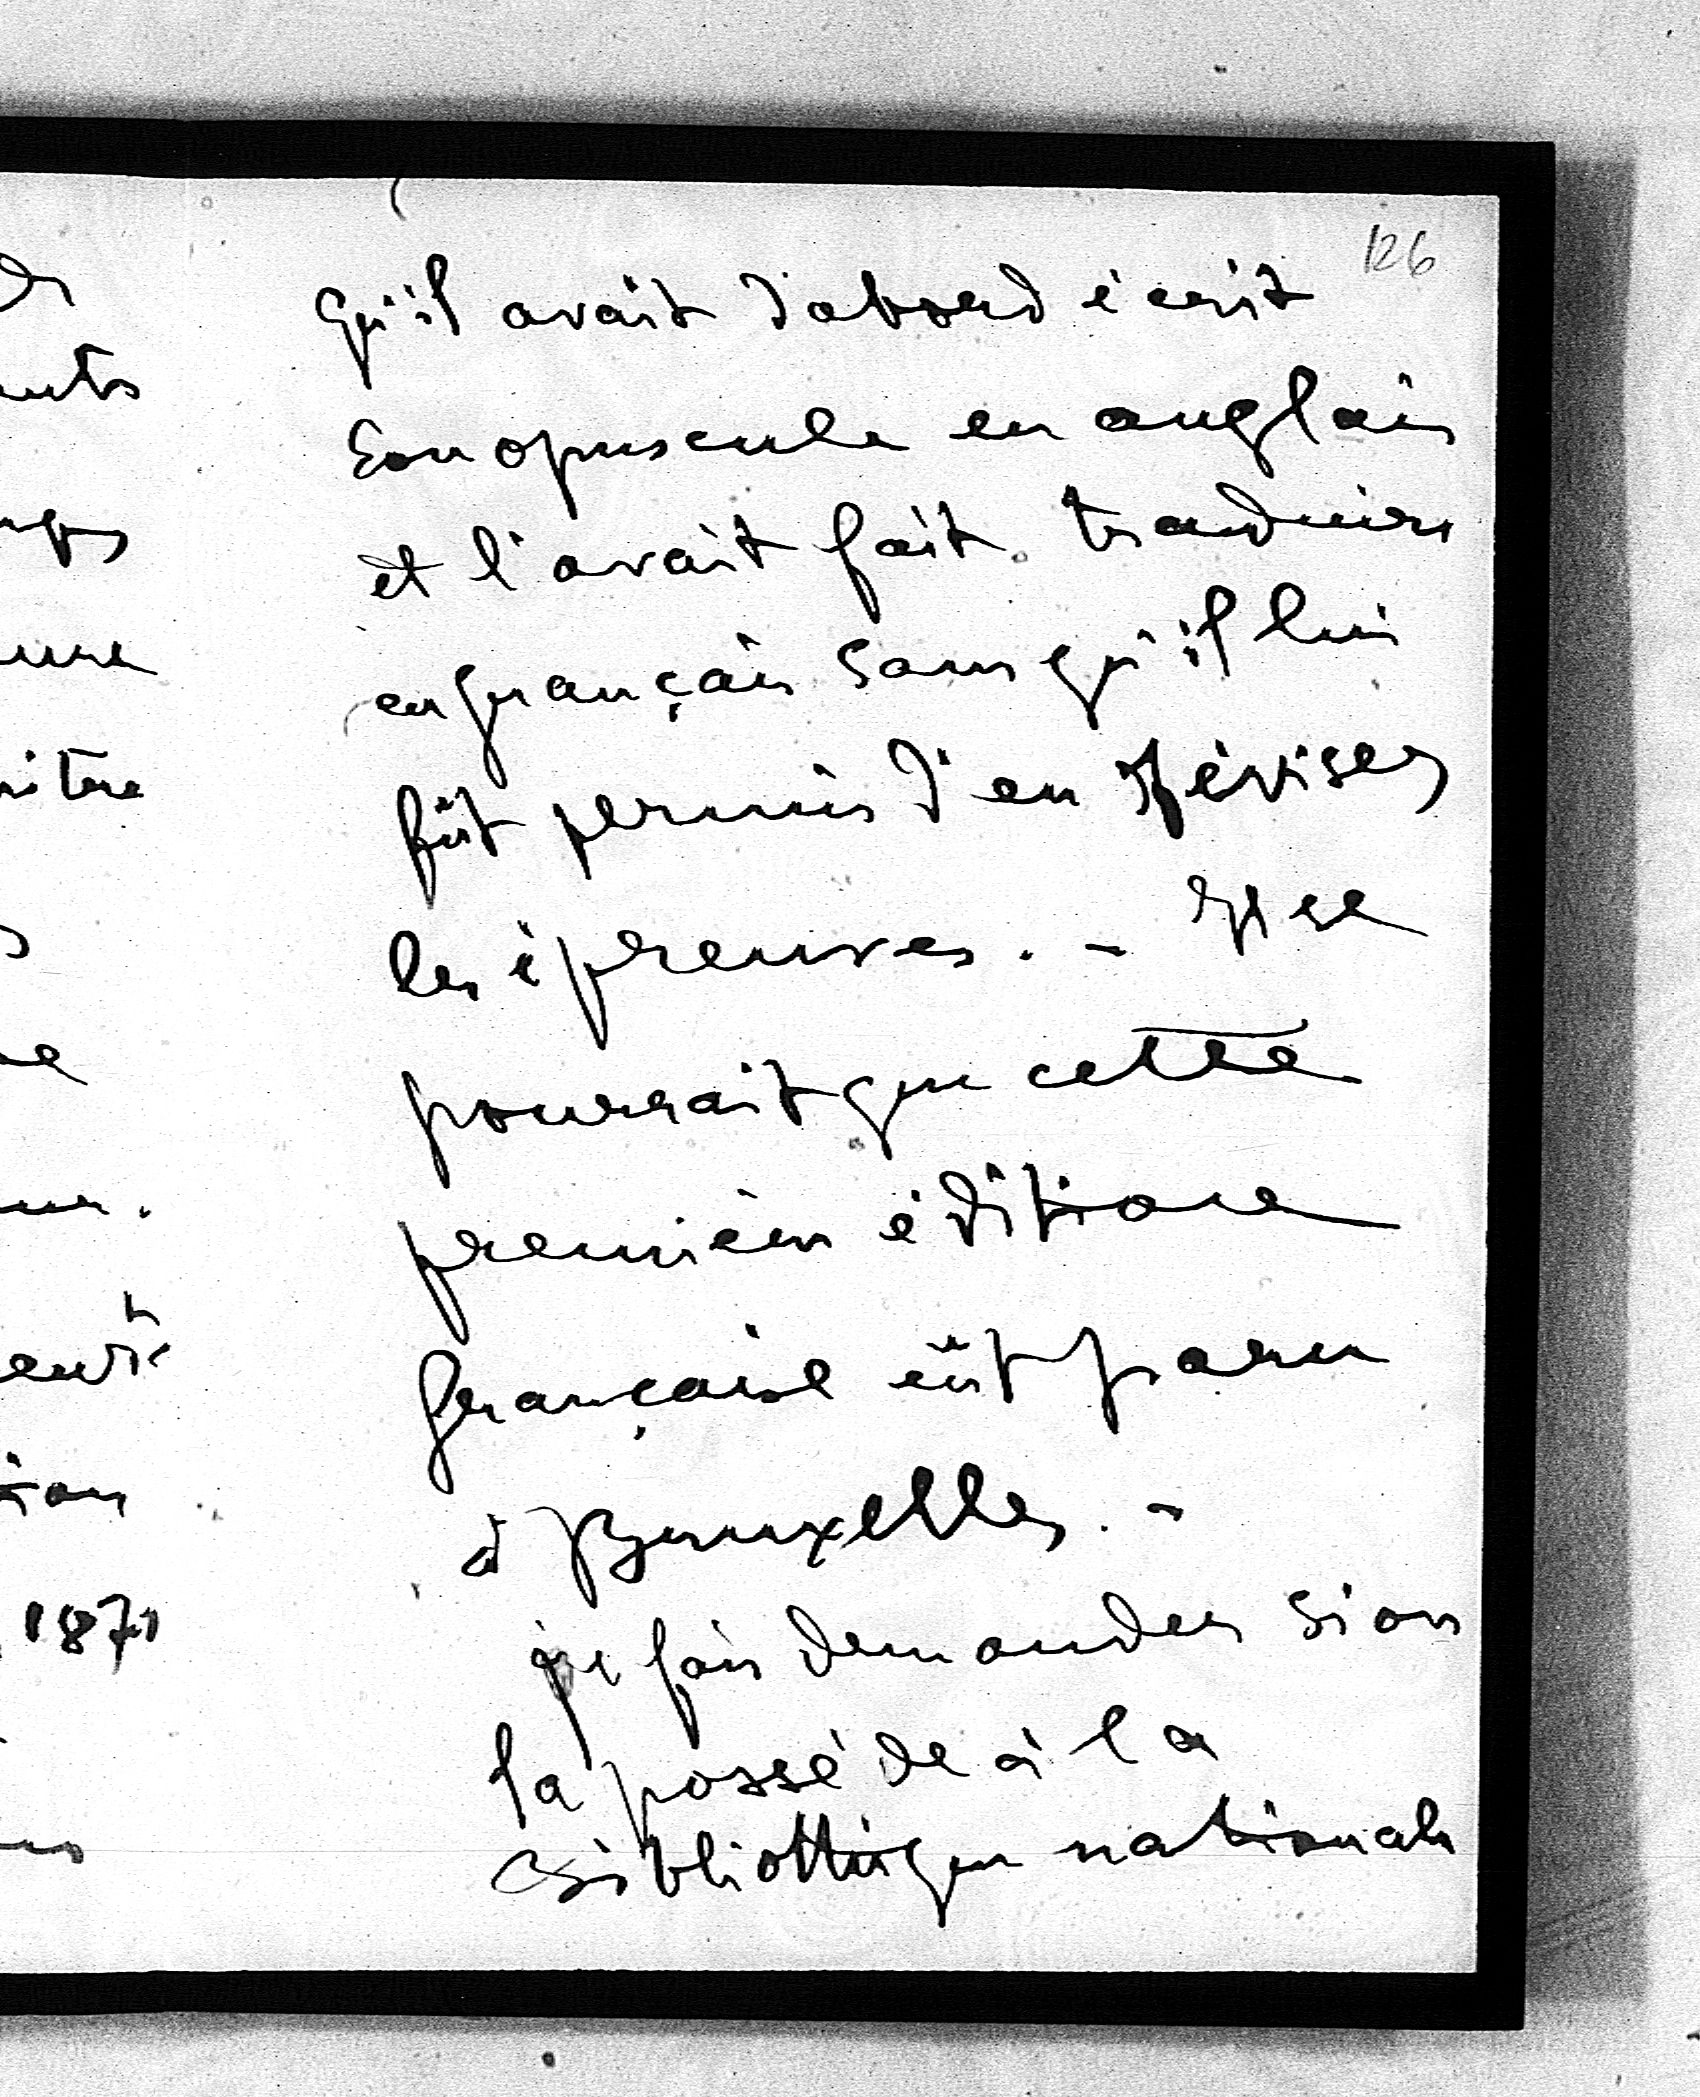 126
qu'il avait d'abord écrit
son opuscule en anglais
et l'avait fait traduire
en français sans qu'il lui
fût permis d'en réviser
les épreuves. - Il se
pourrait que cette
première édition
française eût paru
à Bruxelles. -
je fais demander si on
la possède à la
Bibliothèque nationale
1871